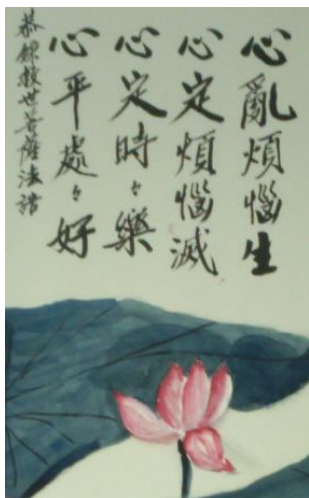 心亂煩惱生
心定煩惱滅
心定時々樂
心平處々好
恭錄救世菩薩法語